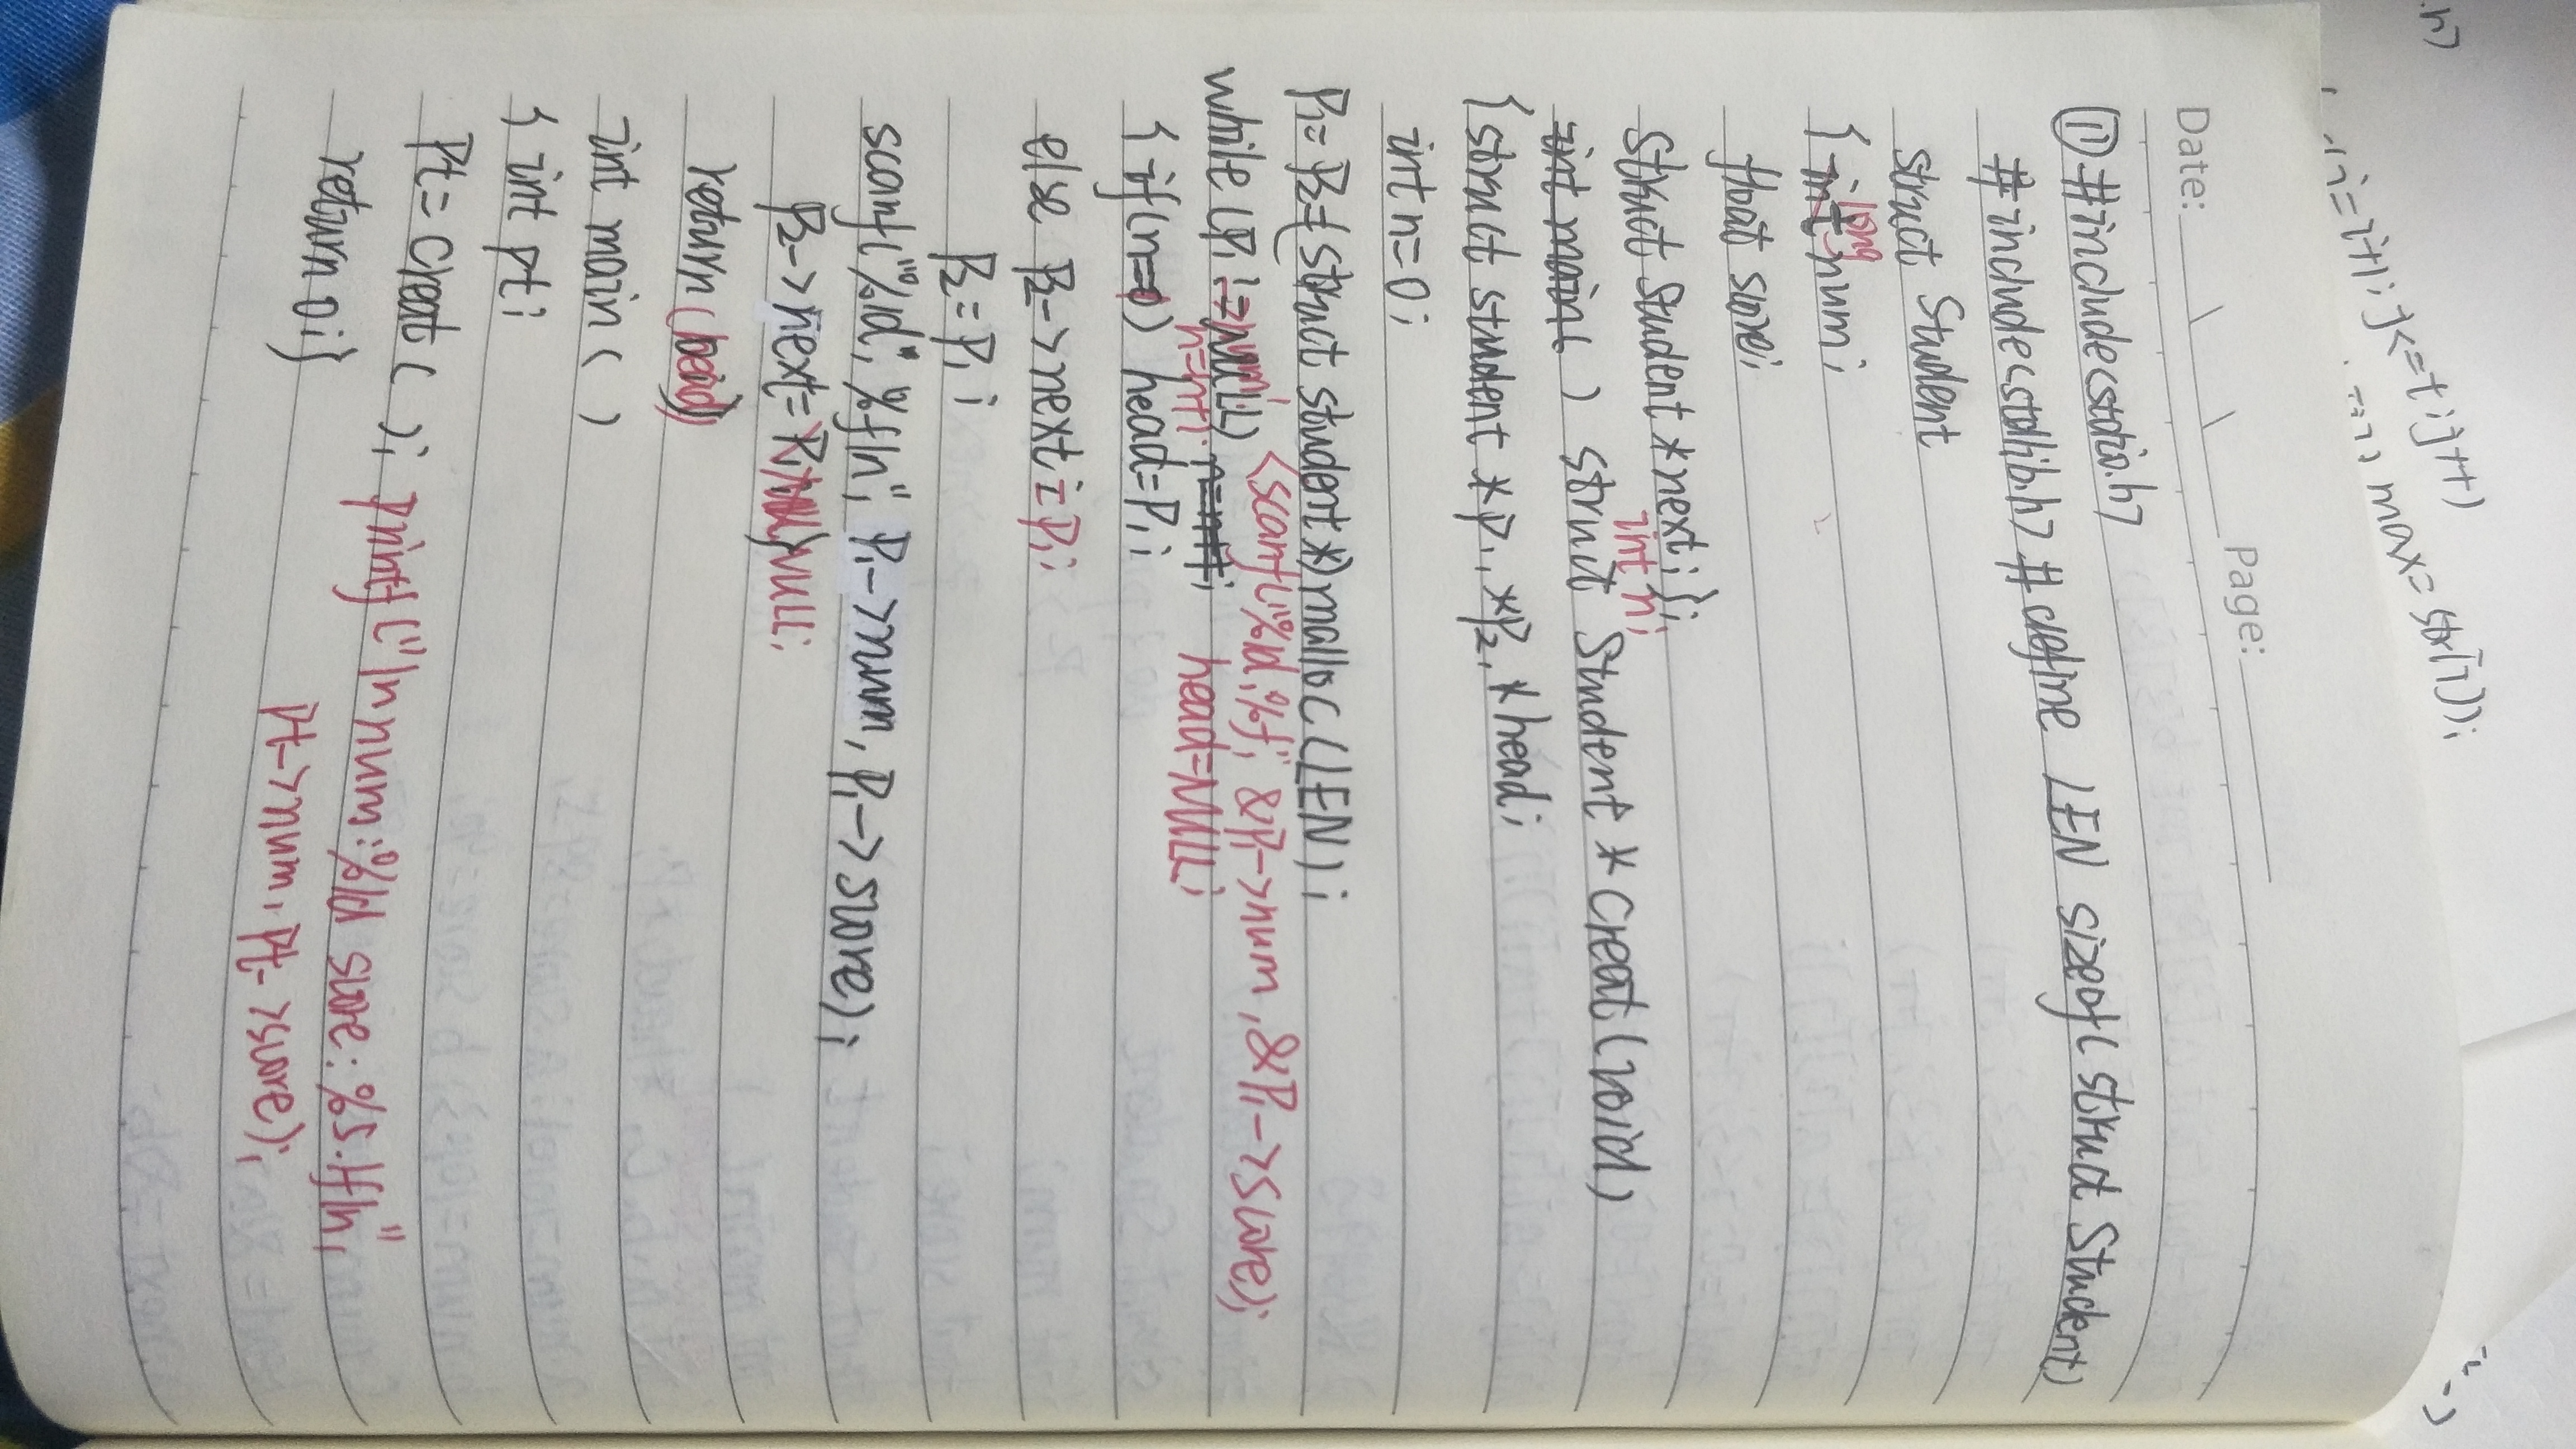 .h>
j=i+1; j<=t; j++)
max=str[i]);
Date: Page:
① #include<stdio.h>
#include<stdlib.h> #define LEN sizeof(struct Student)
struct Student
long
{ int num;
float score;
struct Student *next; };
int n;
int main( ) struct Student * creat(void)
{ struct student *p1, *p2, *head;
int n=0;
P1= P2=(struct student *) malloc (LEN);
scanf("%ld,%f", &P1->num, &P1->score);
while (P1!=NULL) n=n+1; head=NULL;
n=n+1;
{ if(n==1) head=P1;
else P2->next = P1;
P2=P1;
scanf("%ld", %f\n", P1->num, P1->score);
P2->next= NULL;
return (head)
int main ( )
{ int pt;
Pt= creat ( ); printf("\n num:%ld score: %5.1f\n",
return 0;} Pt->num, Pt->score);